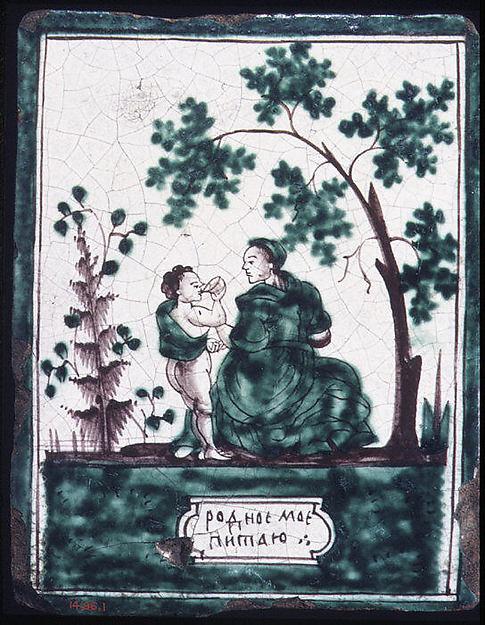 родное мое
питаю
14.96.1